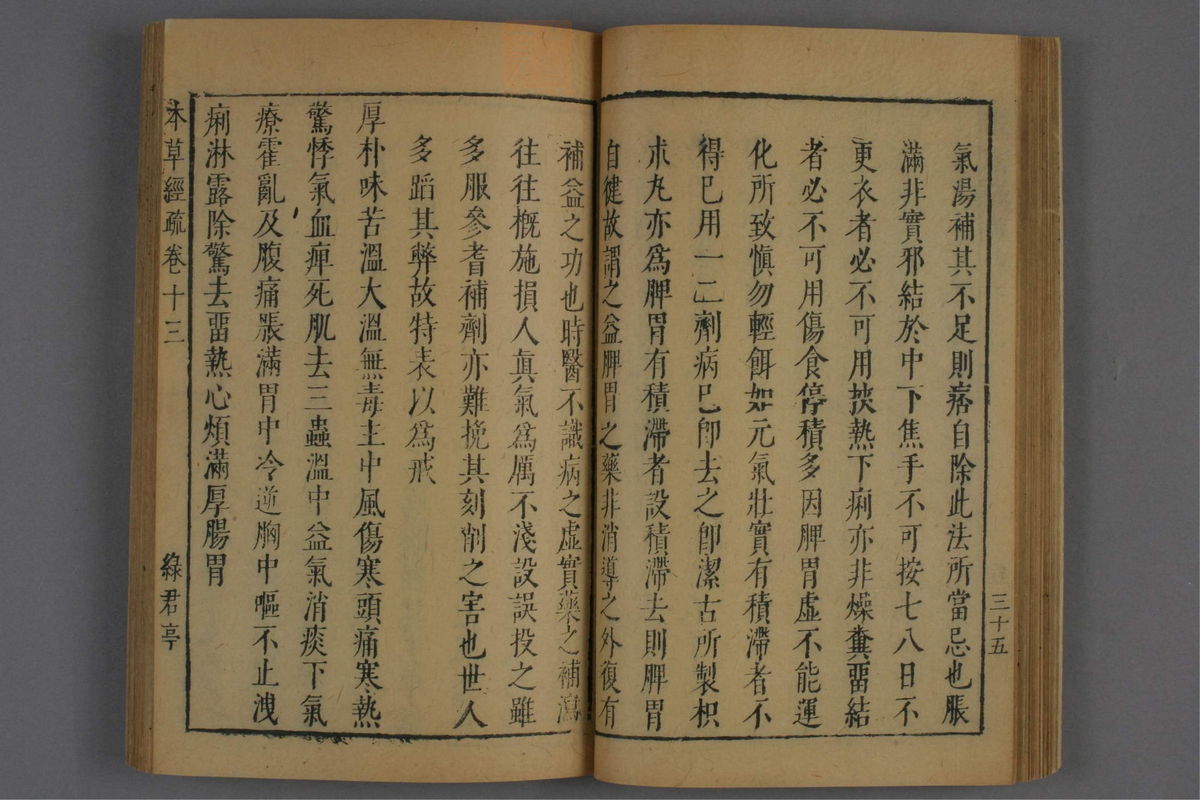 氣湯補其不足則痞自除此法所當忌也脹
滿非實邪結於中下焦手不可按七八日不
更衣者必不可用挾熱下痢亦非燥糞畱結
者必不可用傷食停積多因脾胃虛不能運
化所致愼勿輕餌如元氣壯實有積滯者不
得已用一二劑病已卽去之卽潔古所製枳
朮丸亦爲脾胃有積滯者設積滯去則脾胃
自健故謂之益脾胃之藥非消導之外復有
三十五
補益之功也時醫不識病之虛實藥之補瀉
往往槪施損人眞氣爲厲不淺設誤投之雖
多服參耆補劑亦難挽其刻削之害也世人
多蹈其弊故特表以爲戒
厚朴味苦溫大溫無毒主中風傷寒頭痛寒熱
驚悸氣血痺死肌去三蟲溫中益氣消痰下氣
療霍亂及腹痛脹滿胃中冷逆胸中嘔不止洩
痢淋露除驚去畱熱心煩滿厚腸胃
本草經疏卷十三
綠君亭